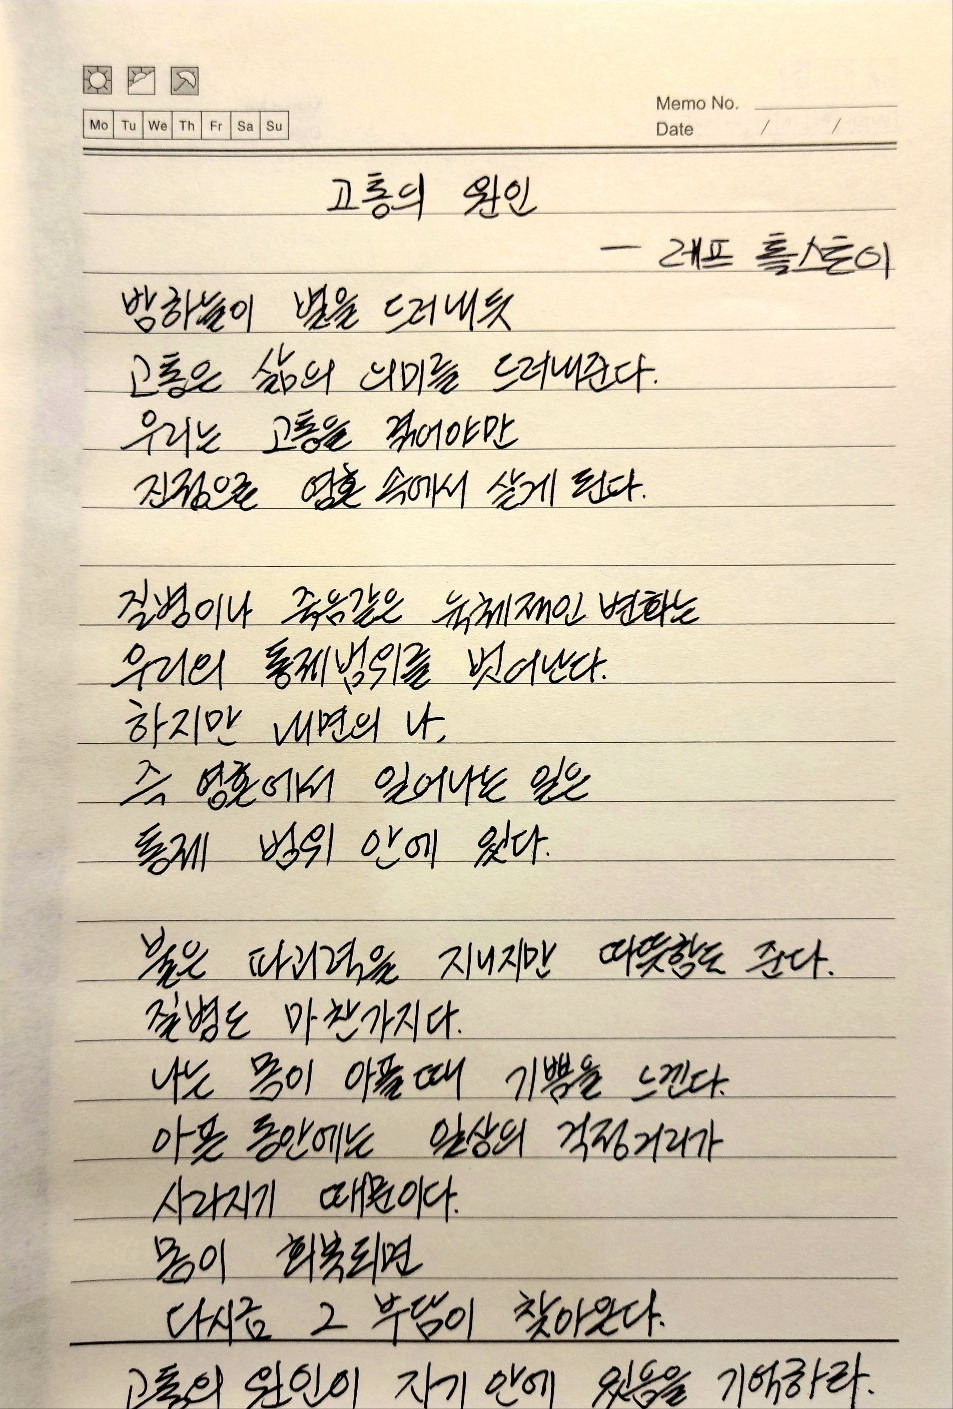 Mo Tu We Th Fr Sa Su
Memo No.
Date / /
고통의 원인
- 레프 톨스토이
밤하늘이 별을 드러내듯
고통은 삶의 의미를 드러내준다.
우리는 고통을 겪어야만
진정으로 영혼 속에서 살게 된다.
질병이나 죽음같은 육체적인 변화는
우리의 통제범위를 벗어난다.
하지만 내면의 나,
즉 영혼에서 일어나는 일은
통제 범위 안에 있다.
불은 파괴력을 지니지만 따뜻함도 준다.
질병도 마찬가지다.
나는 몸이 아플때 기쁨을 느낀다.
아픈 동안에는 일상의 걱정거리가
사라지기 때문이다.
몸이 회복되면
다시금 그 부담이 찾아온다.
고통의 원인이 자기 안에 있음을 기억하라.